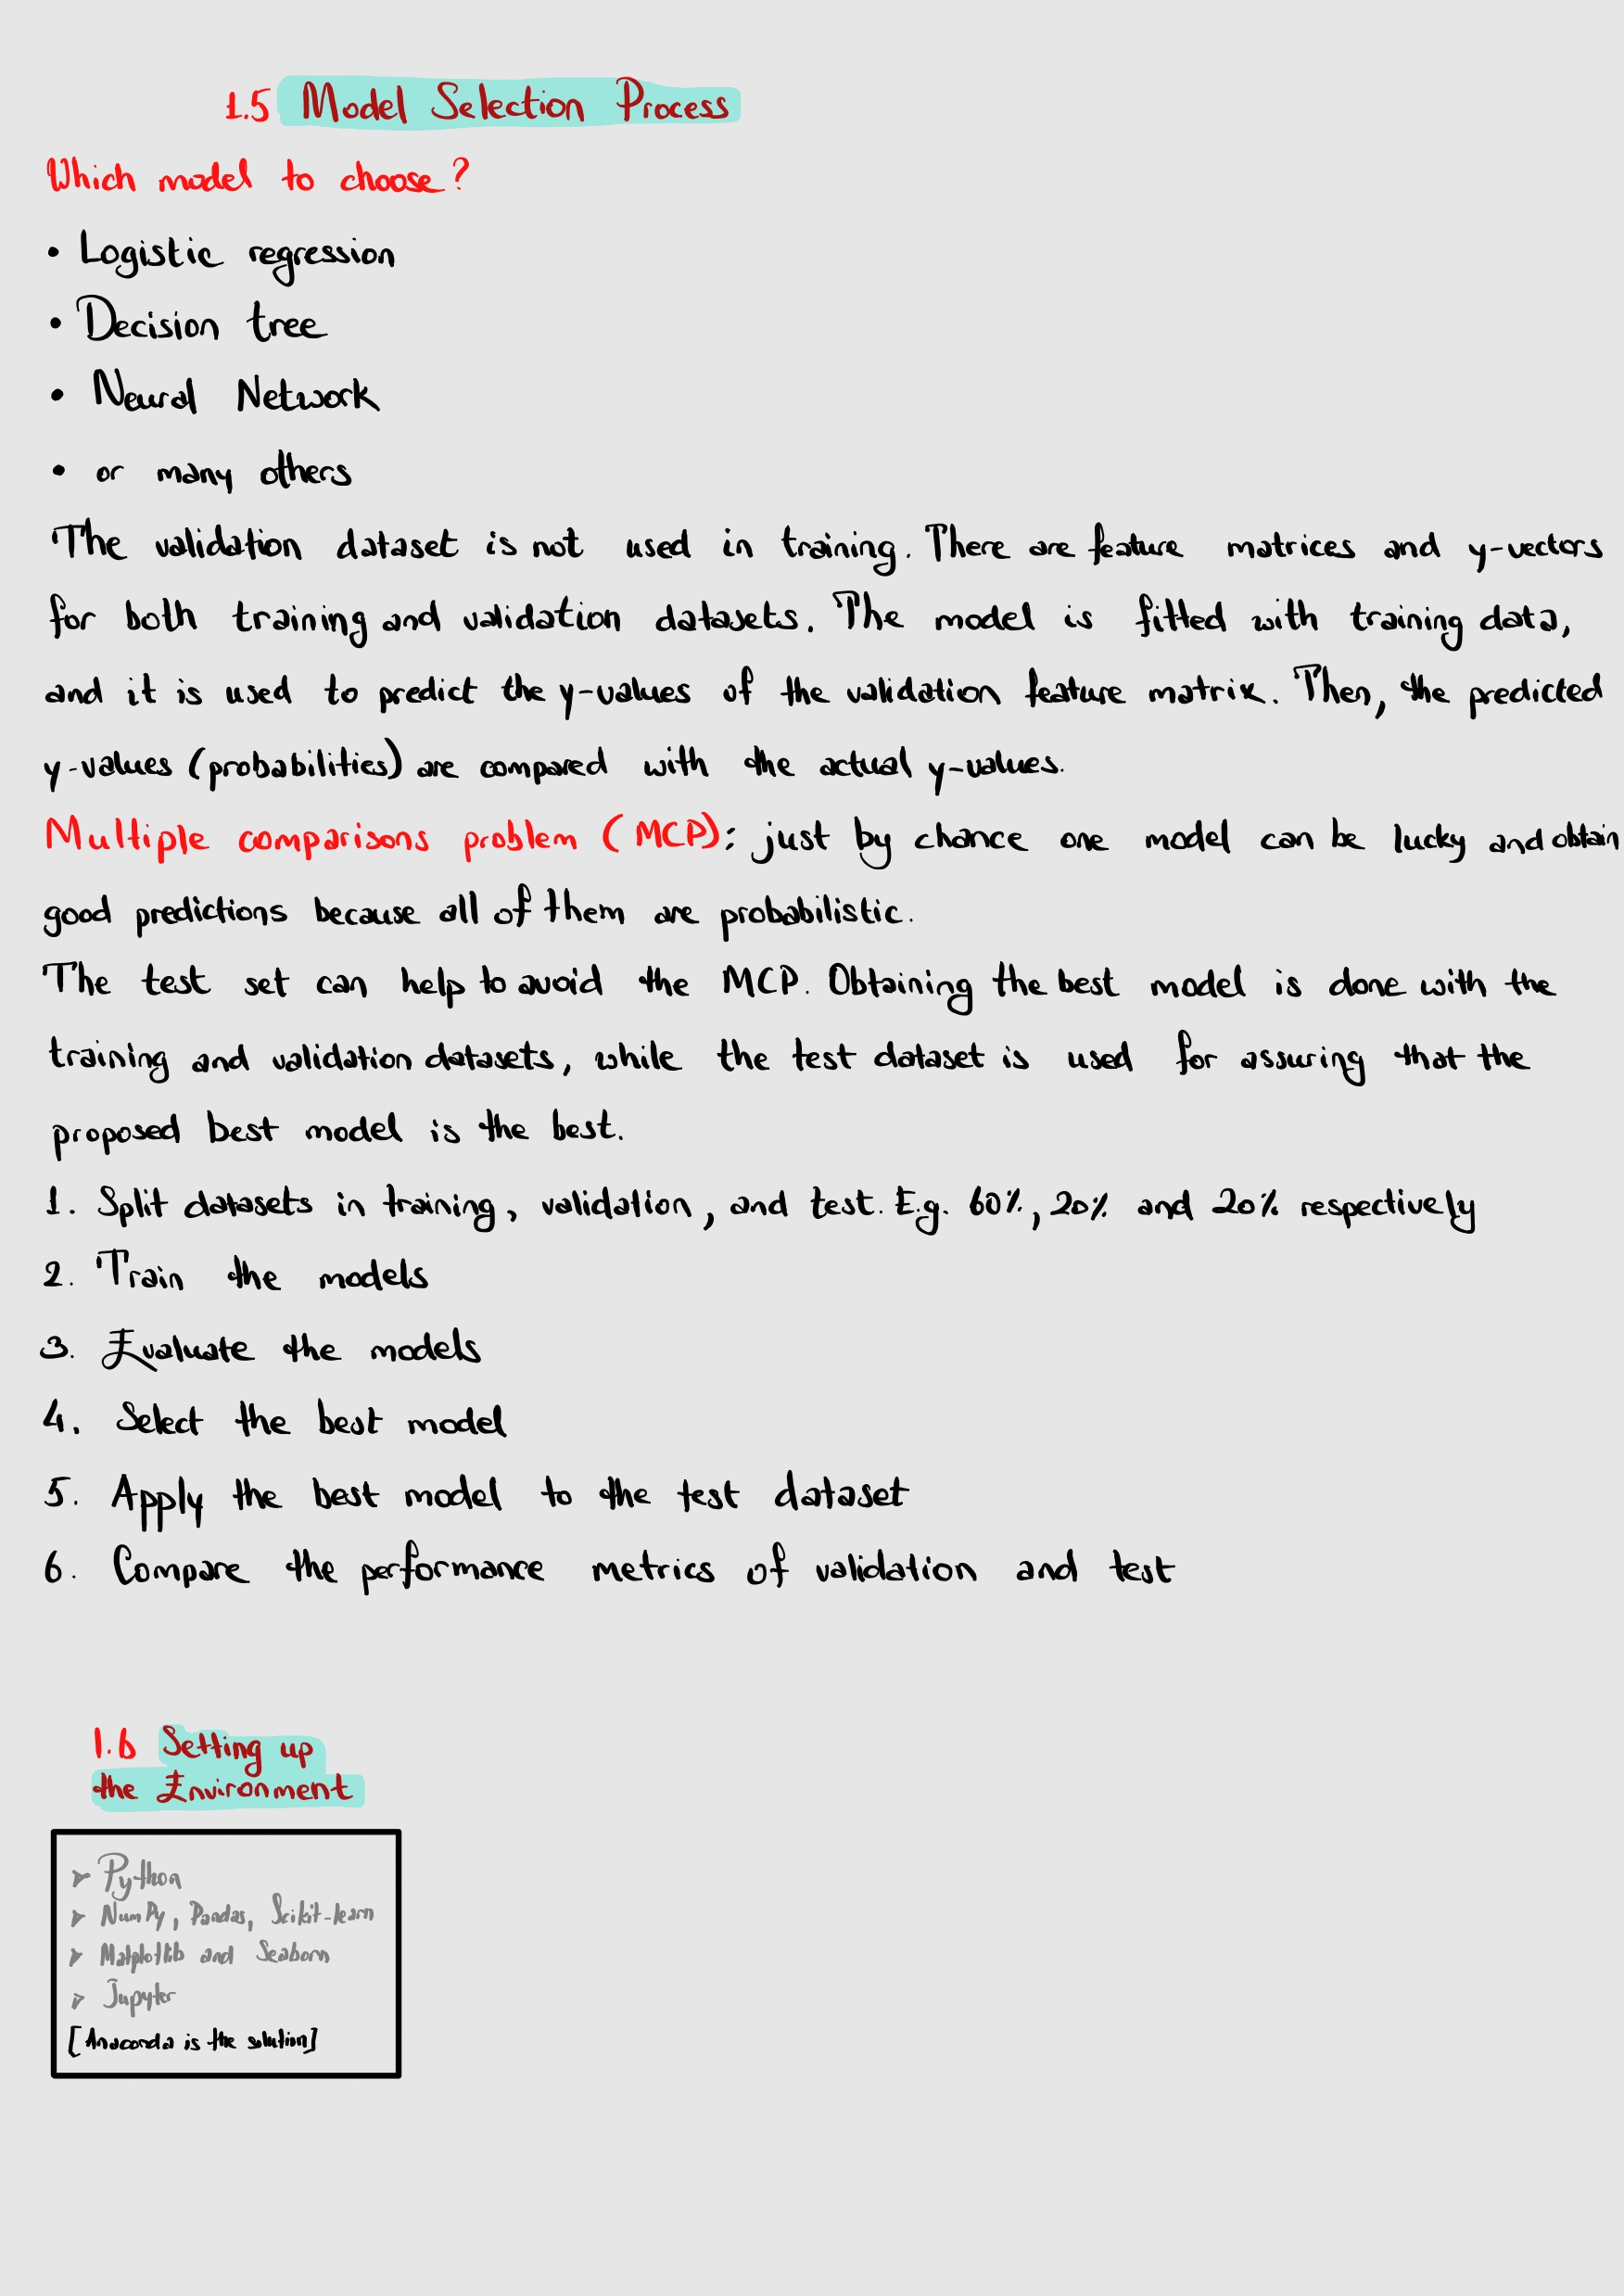 1.5 Model Selection Process
Which model to choose?
• Logistic regression
• Decision tree
• Neural Network
• or many others
The validation dataset is not used in training. There are feature matrices and y-vectors
for both training and validation datasets. The model is fitted with training data,
and it is used to predict the y-values of the validation feature matrix. Then, the predicted
y-values (probabilities) are compared with the actual y-values.
Multiple comparisons problem (MCP): just by chance one model can be lucky and obtain
good predictions because all of them are probabilistic.
The test set can help to avoid the MCP. Obtaining the best model is done with the
training and validation datasets, while the test dataset is used for assuring that the
proposed best model is the best.
1. Split datasets in training, validation, and test. E.g. 60%, 20% and 20% respectively
2. Train the models
3. Evaluate the models
4. Select the best model
5. Apply the best model to the test dataset
6. Compare the performance metrics of validation and test
1.6 Setting up
the Environment
➤ Python
➤ NumPy, Pandas, Scikit-learn
➤ Matplotlib and Seaborn
➤ Jupyter
[Anaconda is the solution]